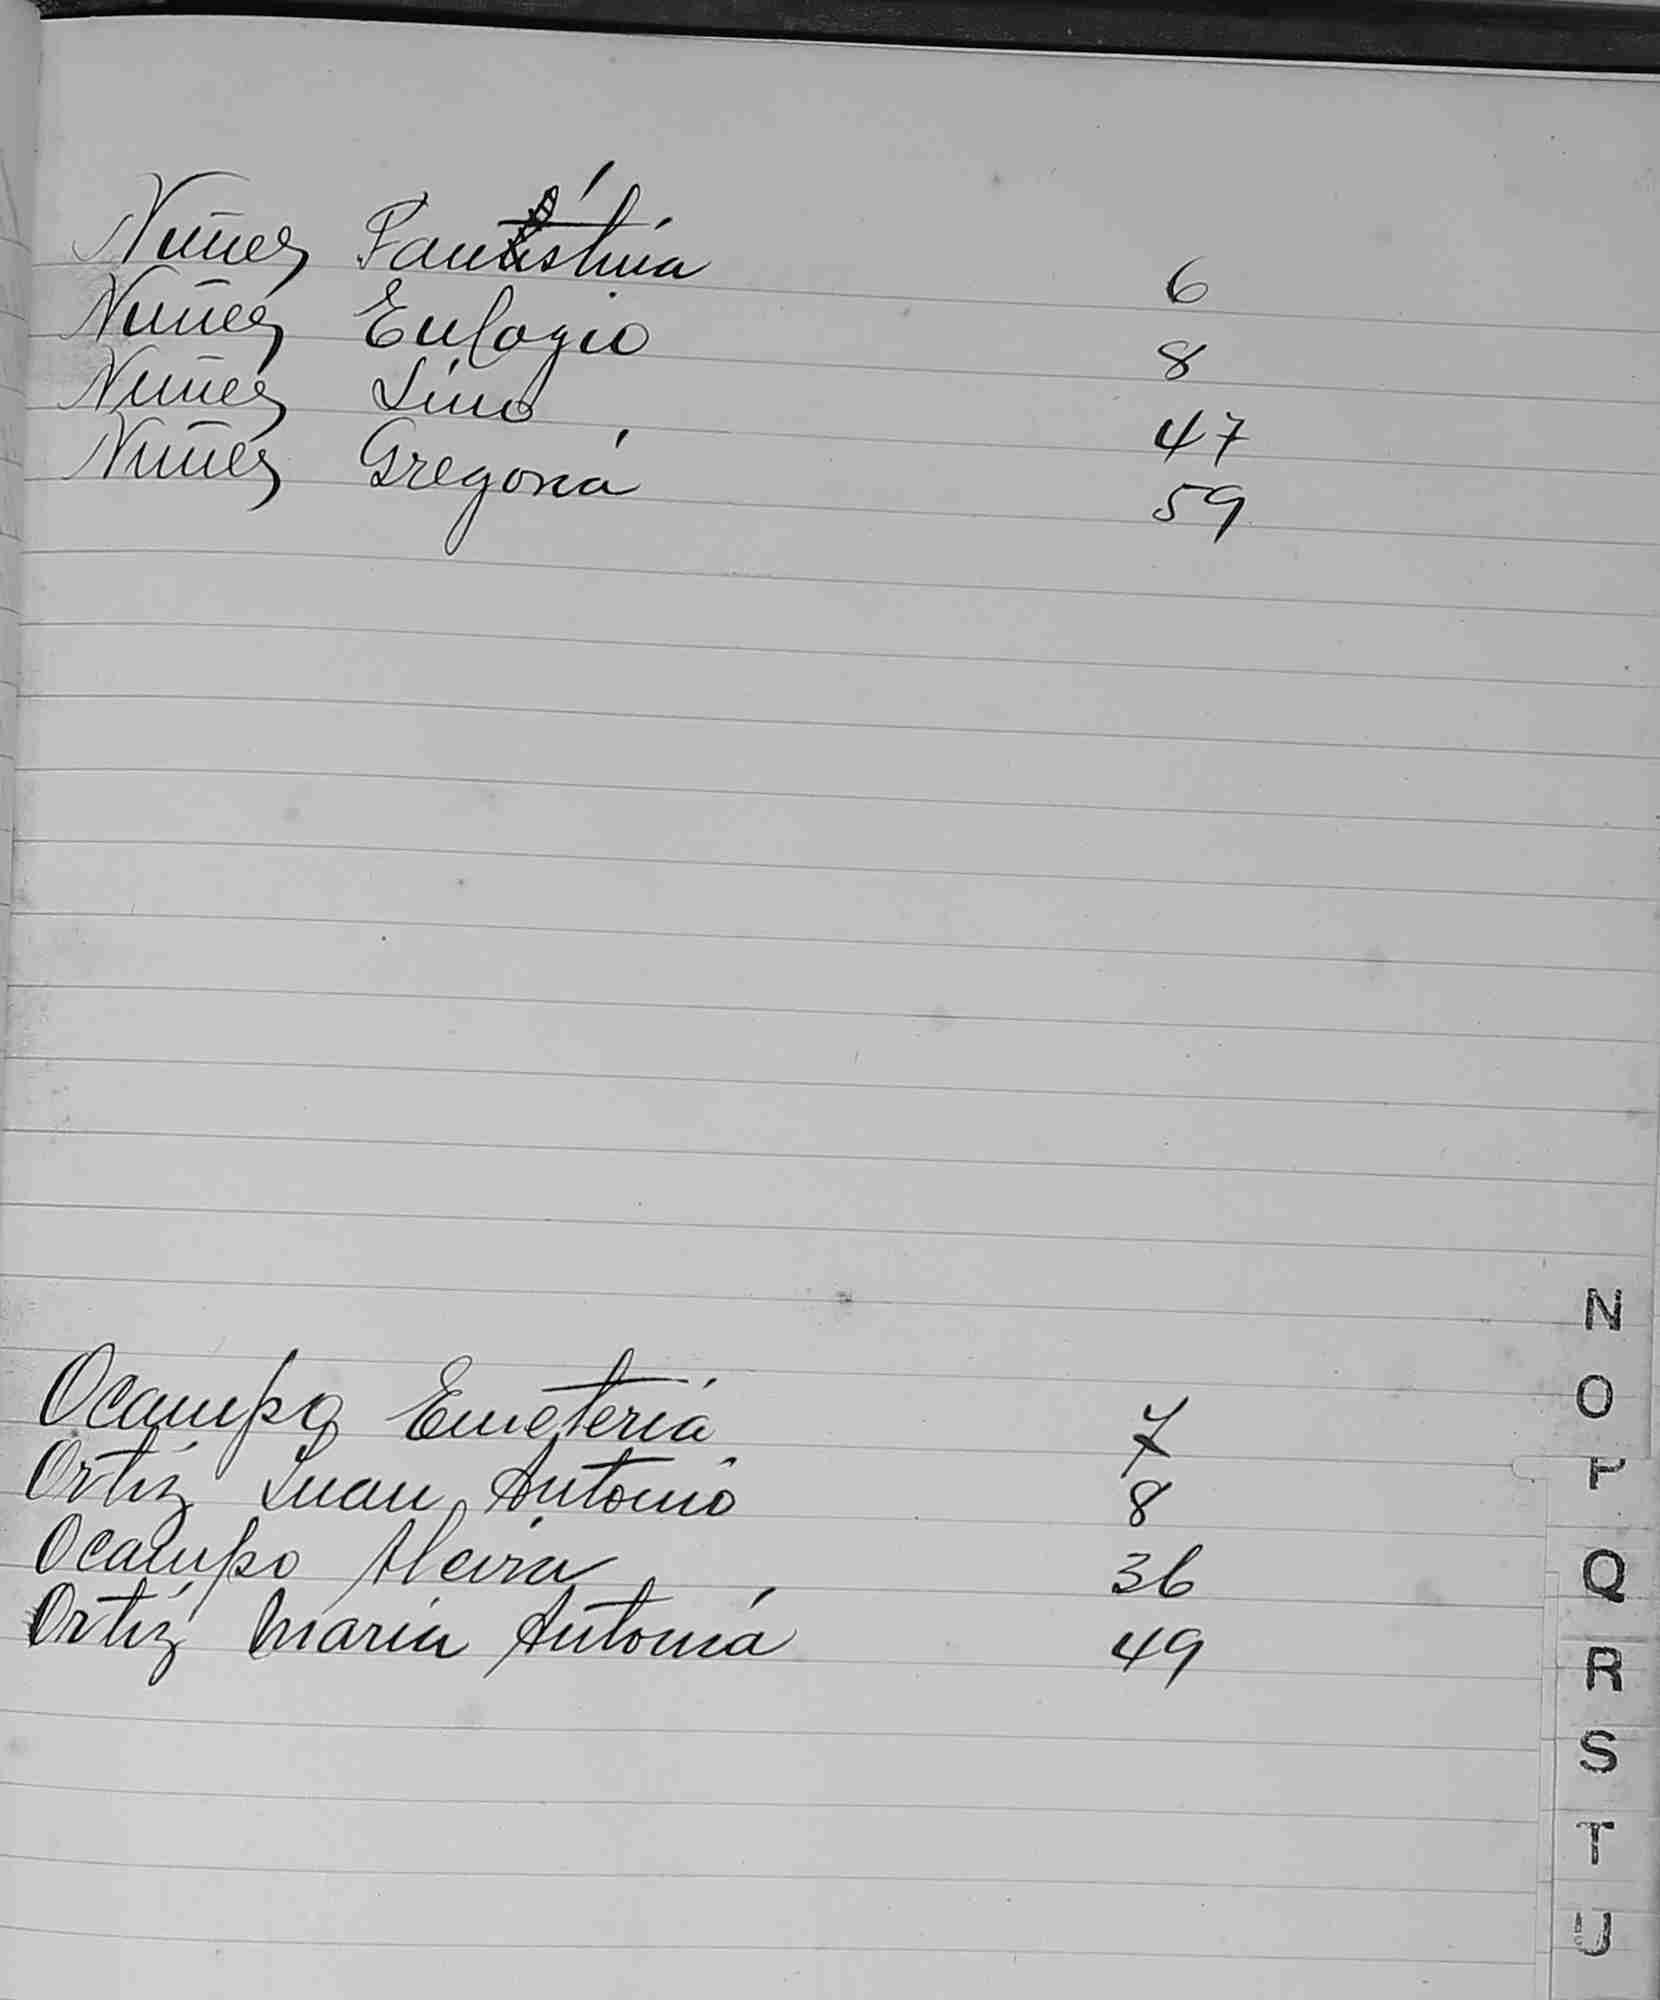 Nuñez Faustina 6
Nuñez Eulogio 8
Nuñez Lino 47
Nuñez Gregoria 59
Ocampo Emeteria 7
Ortiz Juan Antonio 8
Ocampo Alcira 36
Ortiz Maria Antonia 49
N
O
P
Q
R
S
T
U